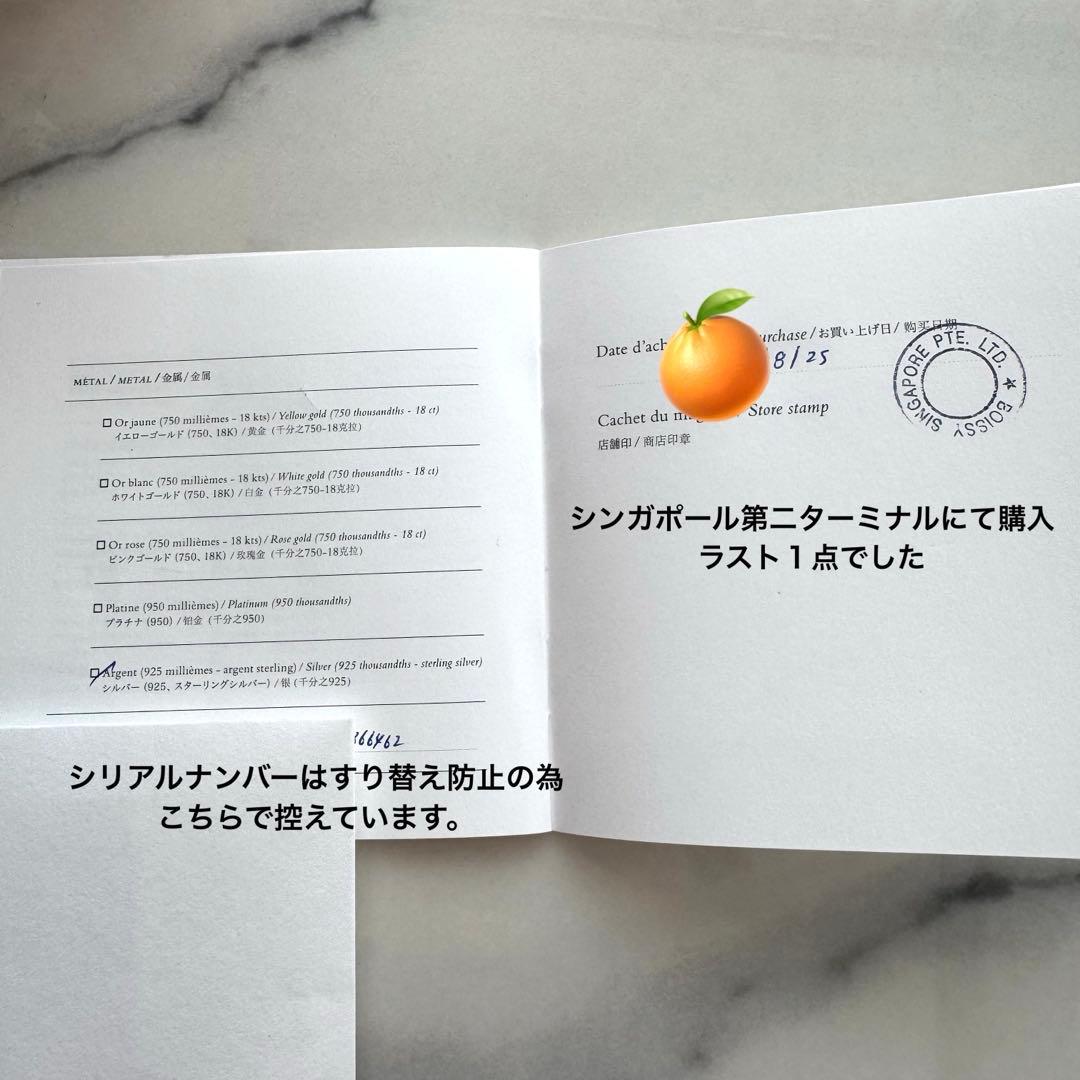 MÉTAL / METAL / 金属 / 金属
Or jaune (750 millièmes – 18 kts) / Yellow gold (750 thousandths - 18 ct)
イエローゴールド (750、18K) / 黄金 (千分之750–18克拉)
Or blanc (750 millièmes – 18 kts) / White gold (750 thousandths - 18 ct)
ホワイトゴールド (750、18K) / 白金 (千分之750–18克拉)
Or rose (750 millièmes – 18 kts) / Rose gold (750 thousandths - 18 ct)
ピンクゴールド (750、18K) / 玫瑰金 (千分之750–18克拉)
Platine (950 millièmes) / Platinum (950 thousandths)
プラチナ (950) / 铂金 (千分之950)
Argent (925 millièmes – argent sterling) / Silver (925 thousandths - sterling silver)
シルバー (925、スターリングシルバー) / 银 (千分之925)
366462
シリアルナンバーはすり替え防止の為
こちらで控えています。
Date d'ach urchase / お買い上げ日 / 购买日期
8/25
Cachet du Store stamp
店舗印 / 商店印章
BOISSY SINGAPORE PTE. LTD. ★
シンガポール第二ターミナルにて購入
ラスト1点でした